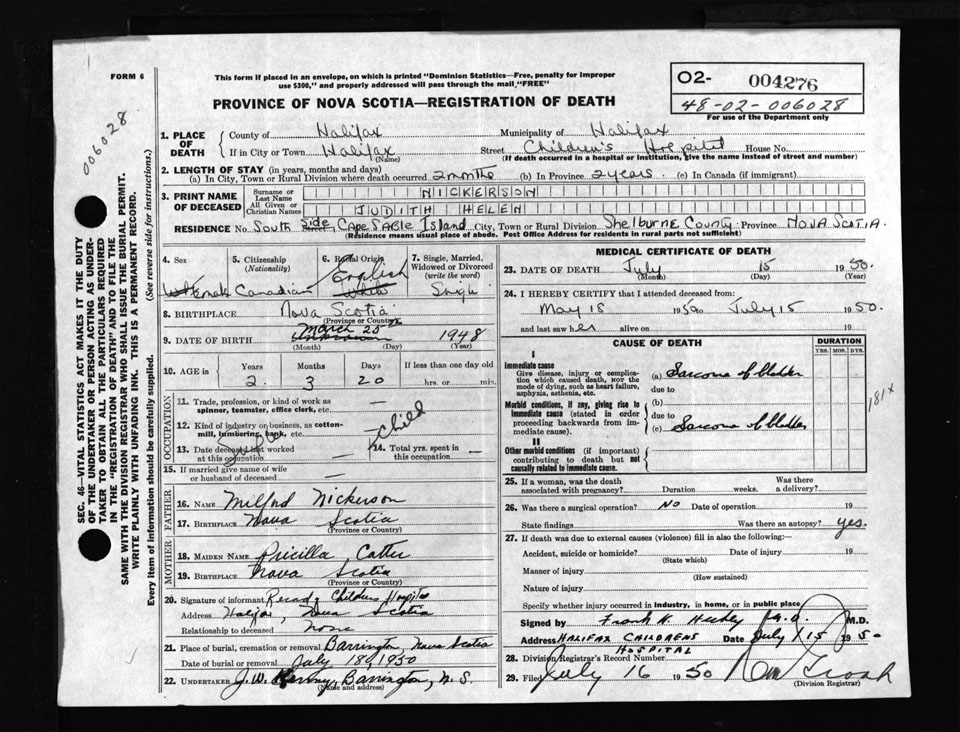 FORM 6
This form if placed in an envelope, on which is printed "Dominion Statistics—Free, penalty for improper
use $300," and properly addressed will pass through the mail "FREE"
PROVINCE OF NOVA SCOTIA—REGISTRATION OF DEATH
O2- 004276
48-02-006028
For use of the Department only
006028
SEC. 46—VITAL STATISTICS ACT MAKES IT THE DUTY
OF THE UNDERTAKER OR PERSON ACTING AS UNDER-
TAKER TO OBTAIN ALL THE PARTICULARS REQUIRED
IN THE "REGISTRATION OF DEATH" AND TO FILE THE
SAME WITH THE DIVISION REGISTRAR WHO SHALL ISSUE THE BURIAL PERMIT.
WRITE PLAINLY WITH UNFADING INK. THIS IS A PERMANENT RECORD.
Every item of information should be carefully supplied. (See reverse side for instructions.)
1. PLACE OF DEATH
County of Halifax Municipality of Halifax
If in City or Town Halifax Street Children's Hospital House No.
(Name) (If death occurred in a hospital or institution, give the name instead of street and number)
2. LENGTH OF STAY (in years, months and days)
(a) In City, Town or Rural Division where death occurred 2 months (b) In Province 2 years. (c) In Canada (if immigrant)
3. PRINT NAME OF DECEASED
Surname or Last Name NICKERSON
All Given or Christian Names JUDITH HELEN
RESIDENCE No. South Side Street, Cape Sable Island City, Town or Rural Division Shelburne County Province NOVA SCOTIA.
(Residence means usual place of abode. Post Office Address for residents in rural parts not sufficient)
4. Sex Female
5. Citizenship (Nationality) Canadian
6. Racial Origin English White
7. Single, Married, Widowed or Divorced (write the word) Single
8. BIRTHPLACE Nova Scotia
(Province or Country)
9. DATE OF BIRTH March 25th Unknown 1948
(Month) (Day) (Year)
10. AGE in Years Months Days If less than one day old
2. 3 20 hrs. or min.
OCCUPATION
11. Trade, profession, or kind of work as
spinner, teamster, office clerk, etc. —
12. Kind of industry or business, as cotton-
mill, lumbering, bank, etc. Child
13. Date deceased last worked
at this occupation — Single
14. Total yrs. spent in
this occupation —
15. If married give name of wife
or husband of deceased —
FATHER
16. NAME Milford Nickerson
17. BIRTHPLACE Nova Scotia
(Province or Country)
MOTHER
18. MAIDEN NAME Pricilla
19. BIRTHPLACE Nova Scotia
(Province or Country)
20. Signature of informant Record, Childrens Hospital
Address Halifax, Nova Scotia
Relationship to deceased None
21. Place of burial, cremation or removal Barrington, Nova Scotia
Date of burial or removal July 18, 1950
22. UNDERTAKER J.W. Barrington, N.S.
(Name and address)
MEDICAL CERTIFICATE OF DEATH
23. DATE OF DEATH July 15 1950.
(Month) (Day) (Year)
24. I HEREBY CERTIFY that I attended deceased from:
May 18 1950 to July 15 1950.
and last saw her alive on 19
CAUSE OF DEATH DURATION
YRS. MOS. DYS.
I
Immediate cause
Give disease, injury or compli-
cation which caused death, not the
mode of dying, such as heart failure,
asphyxia, asthenia, etc.
(a) Sarcoma of bladder
due to
Morbid conditions, if any, giving rise to
immediate cause (stated in order
proceeding backwards from im-
mediate cause).
(b)
due to
(c) Sarcoma of bladder
181x
II
Other morbid conditions (if important)
contributing to death but not
causally related to immediate cause.
25. If a woman, was the death
associated with pregnancy? Duration weeks. Was there
a delivery?
26. Was there a surgical operation? No Date of operation 19
State findings Was there an autopsy? yes.
27. If death was due to external causes (violence) fill in also the following:—
Accident, suicide or homicide? Date of injury 19
(State which)
Manner of injury
(How sustained)
Nature of injury
Specify whether injury occurred in industry, in home, or in public place
Signed by Frank H. M.D.
Address HALIFAX CHILDRENS HOSPITAL Date July 15 1950
28. Division Registrar's Record Number
29. Filed July 16 1950
(Division Registrar)